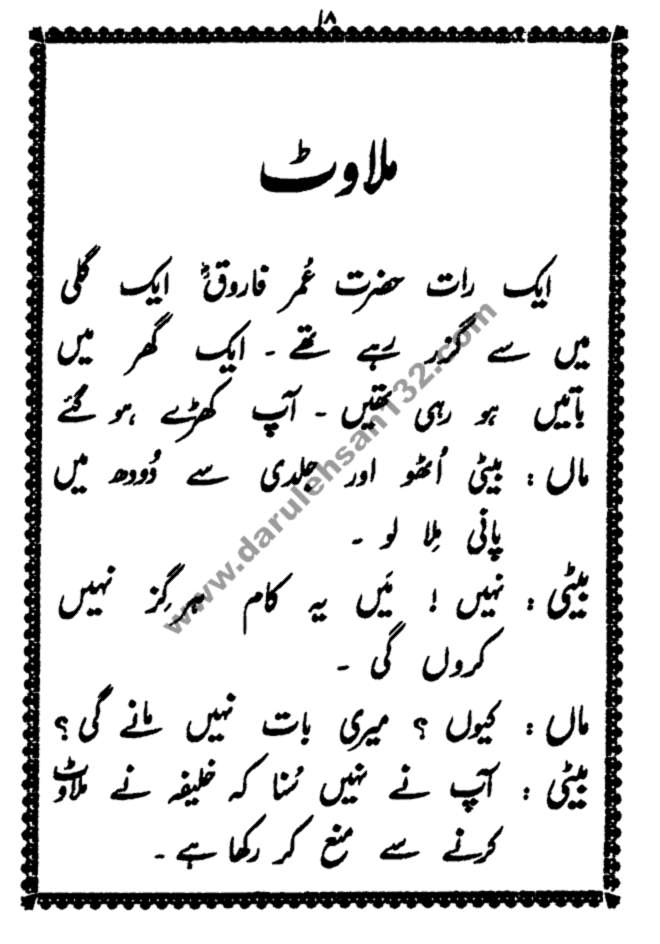 ۱۸
ملاوٹ
ایک رات حضرت عُمر فاروقؓ ایک گلی
میں سے گزر رہے تھے ۔ ایک گھر میں
باتیں ہو رہی تھیں ۔ آپ کھڑے ہو گئے
ماں : بیٹی اُٹھو اور جلدی سے دُودھ میں
پانی مِلا لو ۔
بیٹی : نہیں ! مَیں یہ کام ہرگِز نہیں
کروں گی ۔
ماں : کیوں ؟ میری بات نہیں مانے گی ؟
بیٹی : آپ نے نہیں سُنا کہ خلیفہ نے ملاوٹ
کرنے سے منع کر رکھا ہے ۔
www.darulehsan132.com